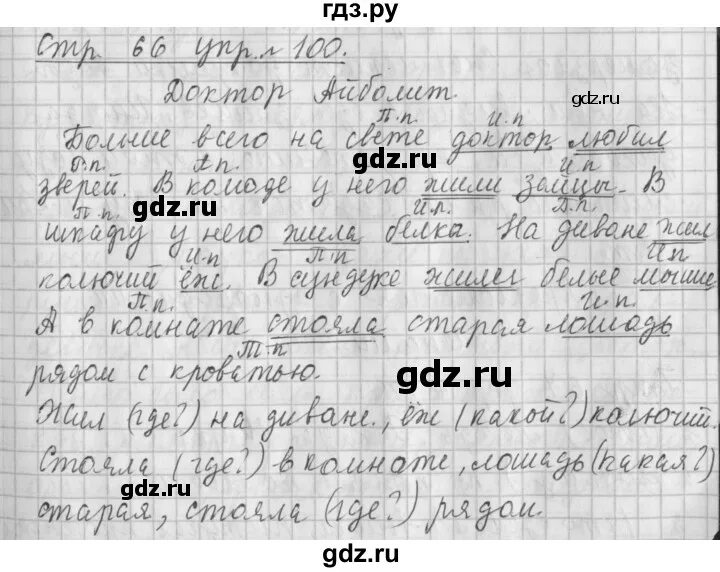 гдз.ру
стр 66 упр. № 100.
Доктор Айболит.
П.п. И.п
Больше всего на свете доктор любил
П.п. П.п. И.п
зверей. В комоде у него жили зайцы. В
П.п. И.п. П.п.
шкафу у него жила белка. На диване жил
И.п П.п И.п
колючий ёж. В сундуке жили белые мыши.
П.п. И.п.
А в комнате стояла старая лошадь
Т.п
рядом с кроватью.
Жил (где?) на диване, ёж (какой?) колючий.
Стояла (где?) в комнате, лошадь (какая?)
старая, стояла (где?) рядом.
gdz.ru
gdz.ru
gdz.ru
gdz.ru
gdz.ru
gdz.ru